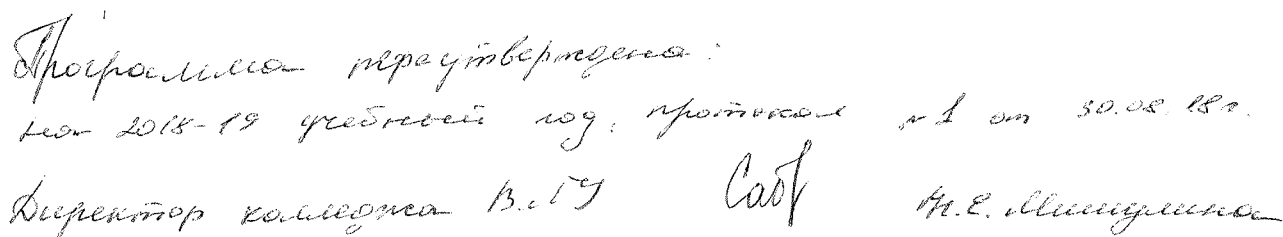 Программа переутверждена:
на 2018-19 учебный год, протокол №1 от 30.08.18г.
Директор колледжа